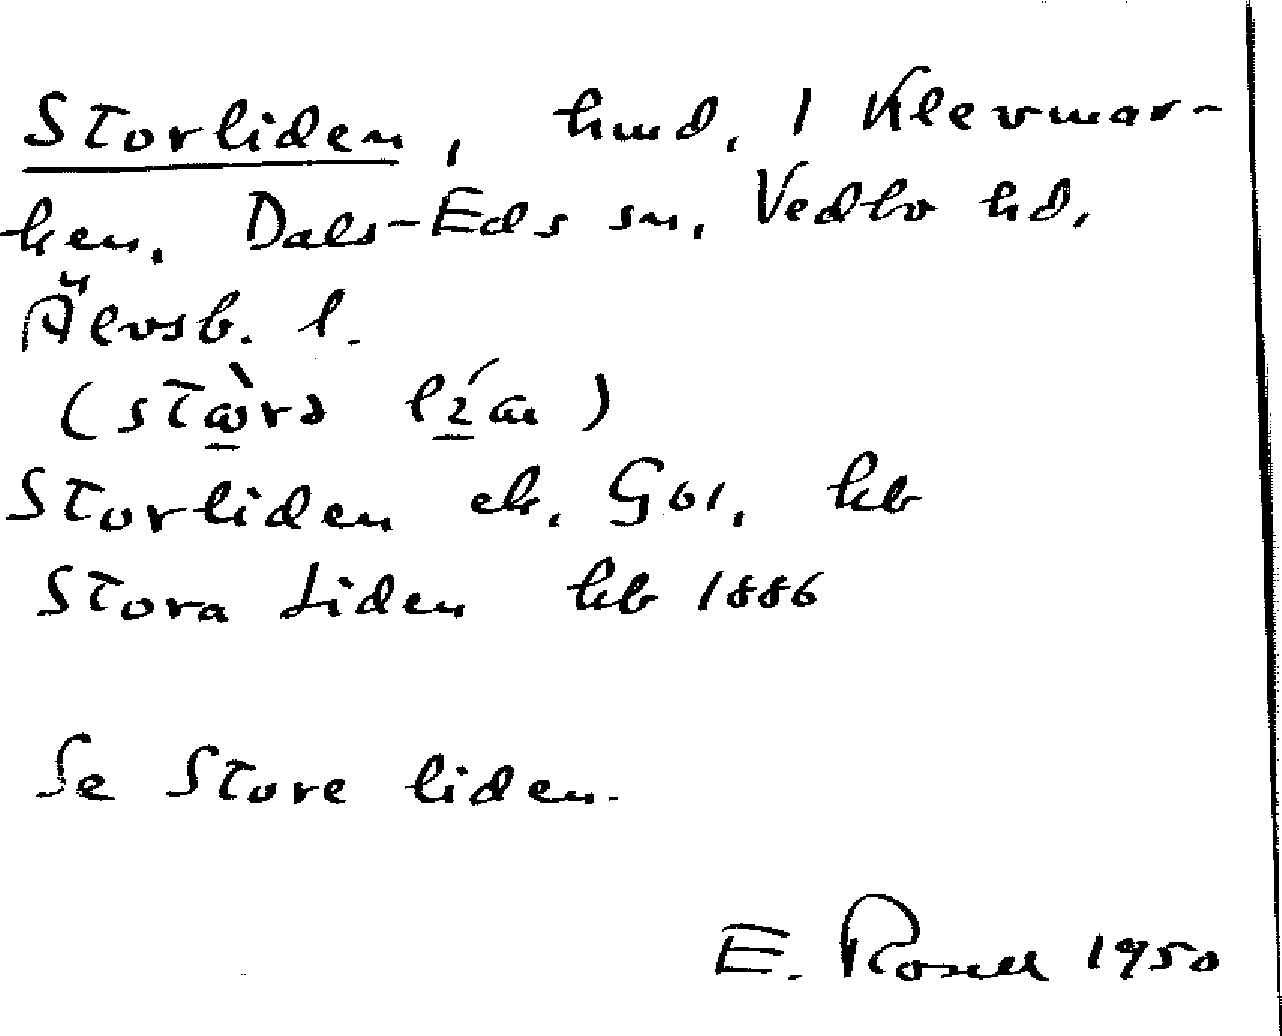 Storliden, hmd, 1 Klevmar-
ken, Dals-Eds sn, Vedbo hd,
Älvsb. l.
Storliden ek. G61, kb
Stora Liden kb 1886
Se Store liden.
E. Rosell 1950